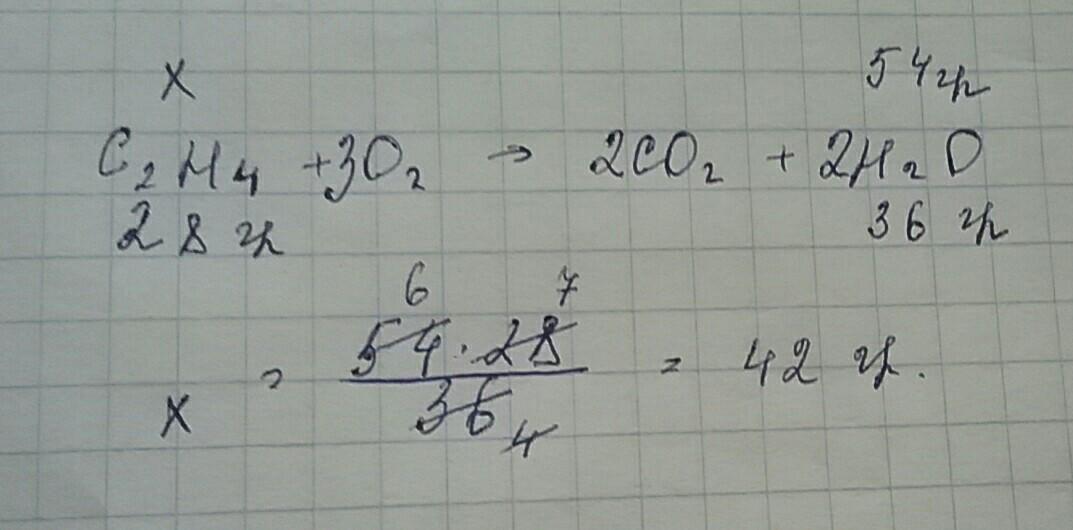 X 54гр
C₂H₄ + 3O₂ → 2CO₂ + 2H₂O
28 гр 36 гр
6 7
X = 54 · 28 / 36 = 42 гр.
4